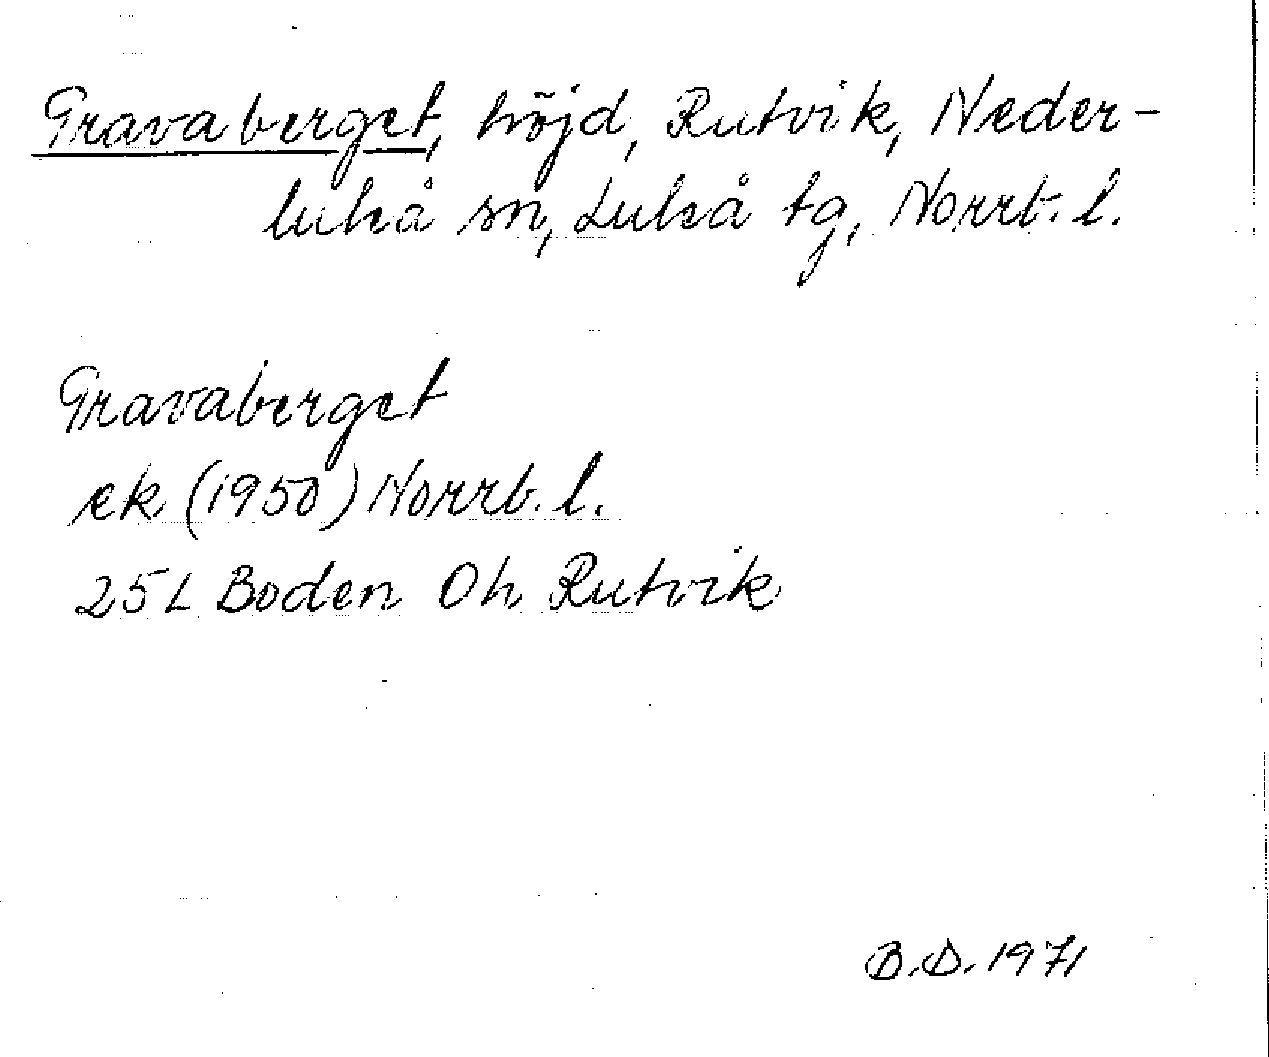 Gravaberget, höjd, Rutvik, Neder-
luleå sn, Luleå tg, Norrb. l.
Gravaberget
ek (1950) Norrb. l.
25L Boden 0h Rutvik
B.D. 1971